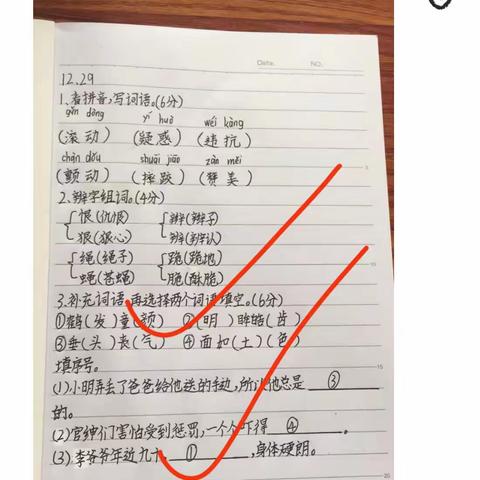 Date. NO.
12.29
1、看拼音,写词语。(6分)
gǔn dòng yí huò wéi kàng
(滚动) (疑惑) (违抗)
chàn dǒu shuāi jiāo zàn měi
(颤动) (摔跤) (赞美)
2.辨字组词。(4分)
恨(仇恨) 辫(辫子)
狠(狠心) 辨(辨认)
绳(绳子) 跪(跪地)
蝇(苍蝇) 脆(酥脆)
3.补充词语,再选择两个词语填空。(6分)
①鹤(发)童(颜) ②(明)眸皓(齿)
③垂(头)丧(气) ④面如(土)(色)
填序号。
(1)小明弄丢了爸爸给他送的手动,所以他总是 ③
的。
(2)官绅们害怕受到惩罚,一个个吓得 ④ 。
(3).李爷爷年近九十, ① ,身体硬朗。
5
10
15
20